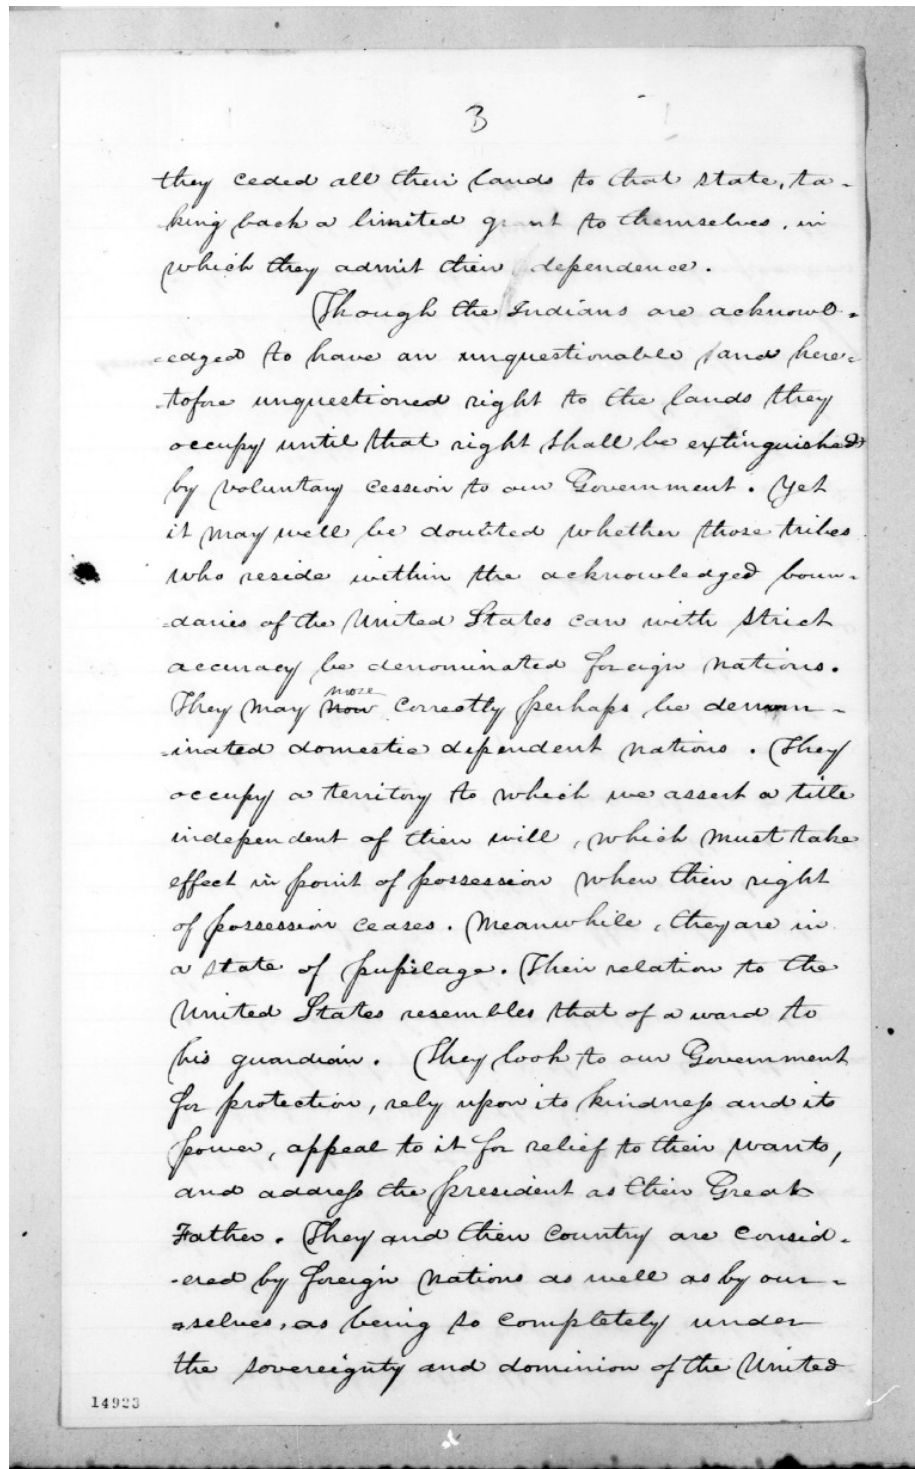 3
they ceded all their lands to that state, ta-
king back a limited grant to themselves, in
which they admit their dependence.
Though the Indians are acknowl-
-edged to have an unquestionable and here-
-tofore unquestioned right to the lands they
occupy until that right shall be extinguished
by voluntary cession to our Government. Yet
it may well be doubted whether those tribes
who reside within the acknowledged boun-
-daries of the United States can with strict
accuracy be denominated foreign nations.
more
They may now correctly perhaps be denom-
-inated domestic dependent nations. They
occupy a territory to which we assert a title
independent of their will, which must take
effect in point of possession when their right
of possession ceases. Meanwhile, they are in
a state of pupilage. Their relation to the
United States resembles that of a ward to
his guardian. They look to our Government
for protection, rely upon its kindness and its
power, appeal to it for relief to their wants,
and address the president as their Great
Father. They and their Country are consid-
-ered by foreign nations as well as by our-
-selves, as being so completely under
the sovereignty and dominion of the United
14923